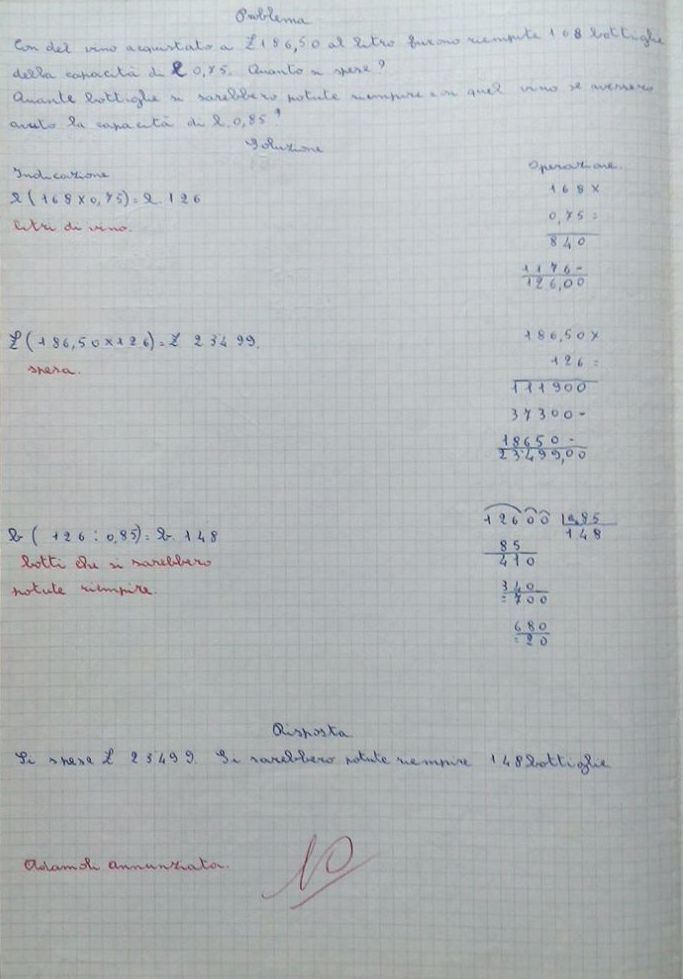 Problema
Con del vino acquistato a £ 186,50 al litro furono riempite 168 bottiglie
della capacità di l 0,75. Quanto si spese?
Quante bottiglie si sarebbero potute riempire con quel vino se avessero
avuto la capacità di l. 0,85?
Soluzione
Indicazione
Operazione.
l (168 x 0,75) = l. 126
litri di vino.
168 x
0,75 =
840
1176-
126,00
£ (186,50 x 126) = £ 23499.
spesa.
186,50 x
126 =
111900
37300-
18650-
23499,00
b (126 : 0,85) = b. 148
botti che si sarebbero
potute riempire.
12600 0,85
85 148
410
340
=700
680
=20
Risposta
Si spese £ 23499. Si sarebbero potute riempire 148 bottiglie
Adamoli Annunziata.
10